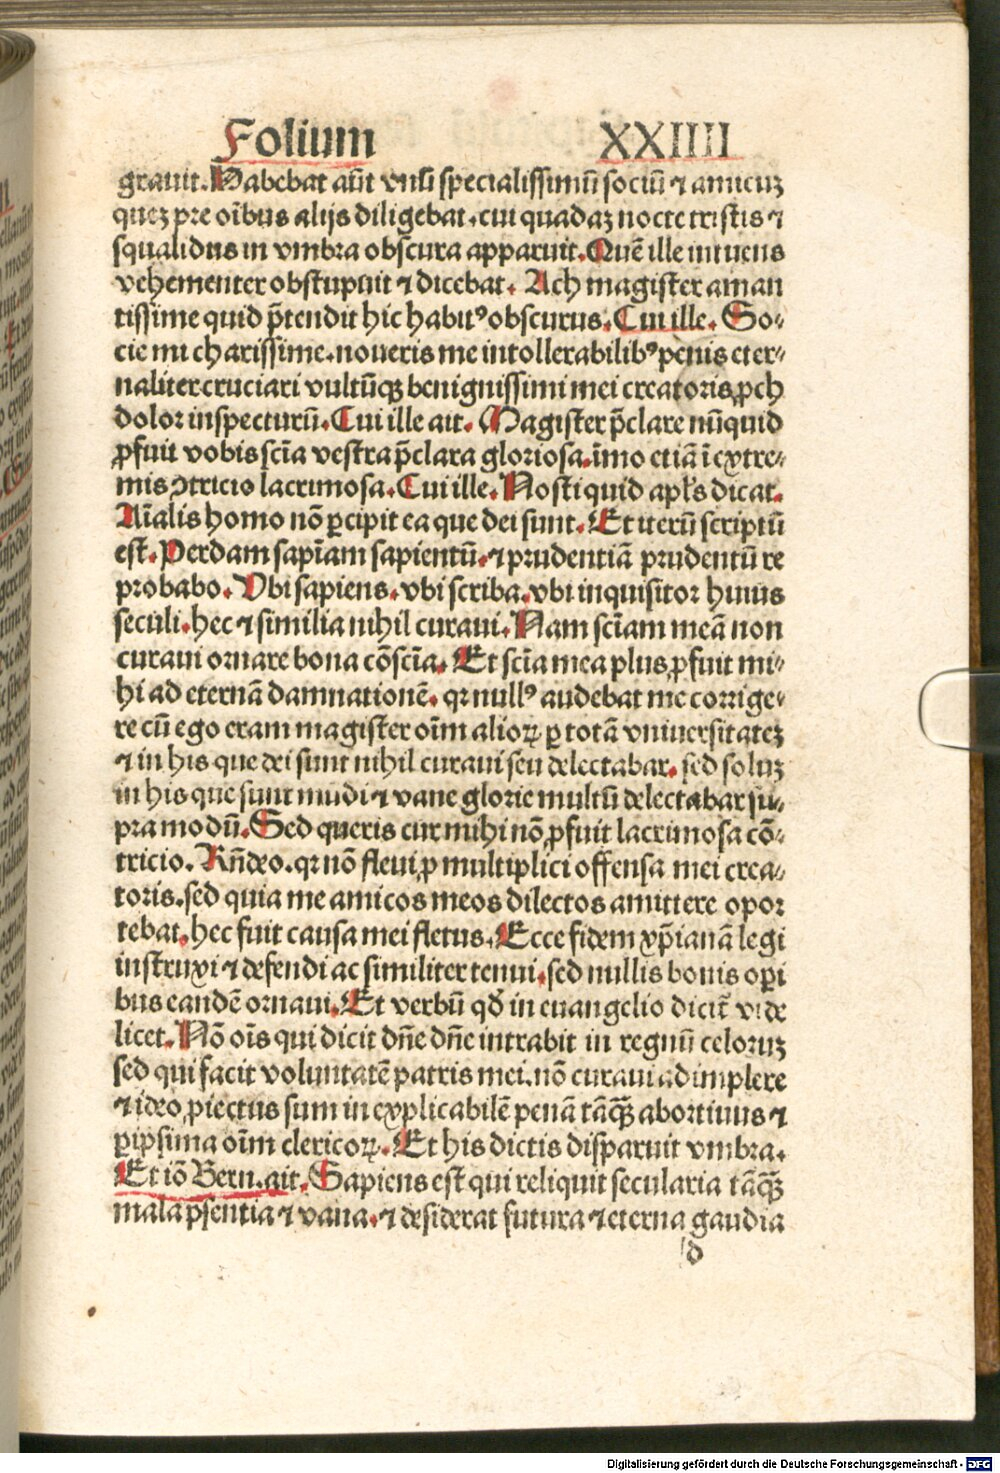 Folium XXIIII
grauit. Habebat aūt vnū specialissimū sociū ⁊ amicuꝫ
queꝫ pre oībus alijs diligebat. cui quadaꝫ nocte tristis ⁊
squalidus in vmbra obscura apparuit. Quē ille intuens
vehementer obstupuit ⁊ dicebat. Ach magister aman
tissime quid p̄tendit hic habitꝰ obscurus. Cui ille. So⸗
cie mi charissime. noueris me intollerabilibꝰ penis eter⸗
naliter cruciari vultūqꝫ benignissimi mei creatoris ꝓch
dolor inspecturū. Cui ille ait. Magister p̄clare nūquid
ꝓfuit vobis scīa vestra p̄clara gloriosa. īmo etiā ī extre⸗
mis ꝯtricio lacrimosa. Cui ille. Nosti quid apl̄s dicat.
Aīalis homo nō ꝑcipit ea que dei sunt. Et iterū scriptū
est. Perdam sapīam sapientū. ⁊ prudentiā prudentū re
probabo. Vbi sapiens. vbi scriba. vbi inquisitor huius
seculi. hec ⁊ similia nihil curaui. Nam scīam meā non
curaui ornare bona cōscīa. Et scīa mea plus ꝓfuit mi⸗
hi ad eternā damnationē. qꝛ nullꝰ audebat me corrige⸗
re cū ego eram magister oīm alioꝝ ꝑ totā vniuersitateꝫ
⁊ in his que dei sunt nihil curaui seu delectabar. sed soluꝫ
in his que sunt mūdi ⁊ vane glorie multū delectabar su⸗
pra modū. Sed queris cur mihi nō ꝓfuit lacrimosa cō⸗
tricio. Rn̄deo. qꝛ nō fleui ꝓ multiplici offensa mei crea⸗
toris. sed quia me amicos meos dilectos amittere opor
tebat. hec fuit causa mei fletus. Ecce fidem xp̄ianā legi
instruxi ⁊ defendi ac similiter tenui. sed nullis bonis oꝑi
bus eandē ornaui. Et verbū qd̄ in euangelio dicit̄ vide
licet. Nō oīs qui dicit dn̄e dn̄e intrabit in regnū celoruꝫ
sed qui facit voluntatē patris mei. nō curaui adimplere
⁊ ideo ꝓiectus sum in explicabilē penā tāqꝫ̄ abortiuus ⁊
ꝑipsima oīm clericoꝝ. Et his dictis disparuit vmbra.
Et iō Bern. ait. Sapiens est qui reliquit secularia tāqꝫ̄
mala p̄sentia ⁊ vana. ⁊ desiderat futura ⁊ eterna gaudia
d
Digitalisierung gefördert durch die Deutsche Forschungsgemeinschaft - DFG